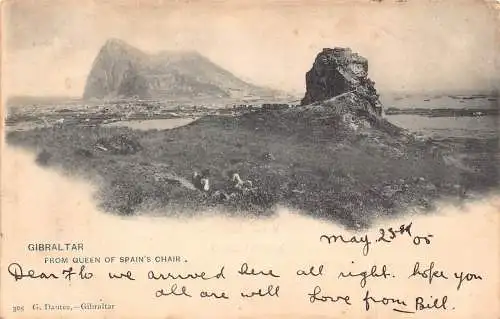 GIBRALTAR
FROM QUEEN OF SPAIN'S CHAIR.
May 23rd 05
Dear Flo we arrived here all right. hope you
all are well, Love from Bill.
305 G. Dautez,—Gibraltar